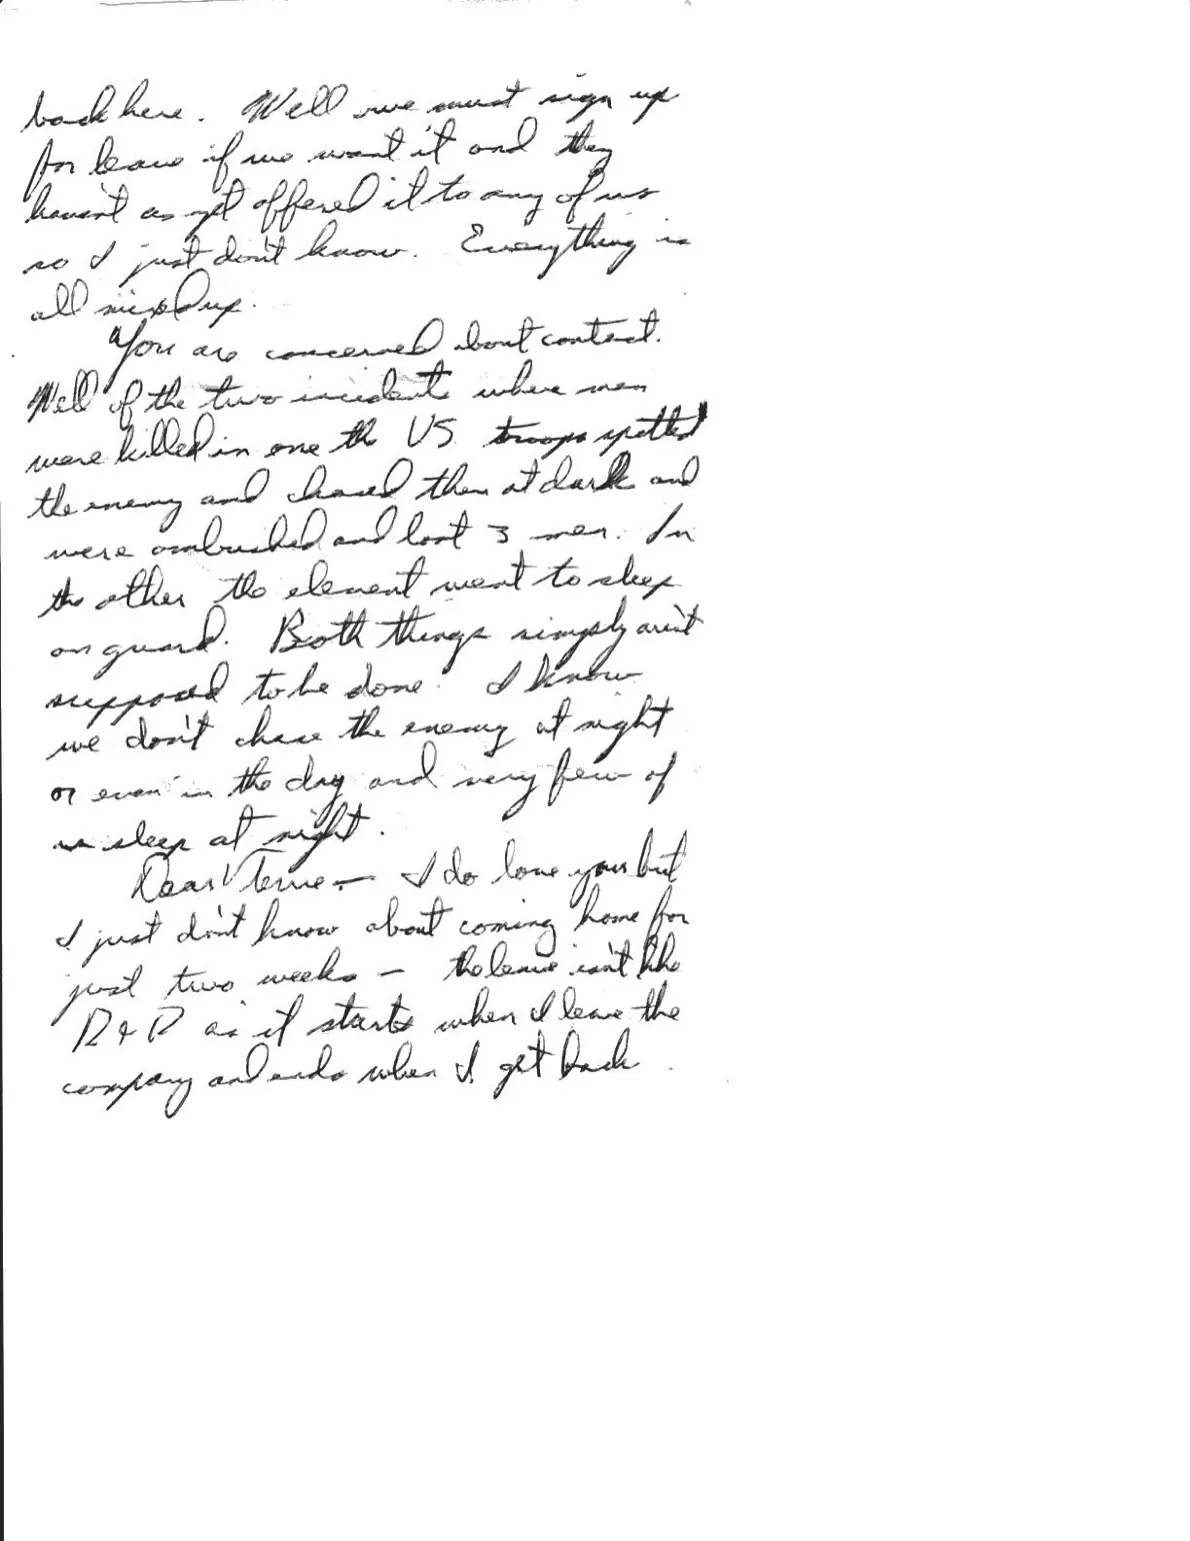 back here. Well we must sign up
for leave if we want it and they
haven't as yet offered it to any of us
so I just don't know. Everything is
all mixed up.
You are concerned about contact.
Well of the two incidents where men
were killed in one the US troops spotted
the enemy and chased them at dark and
were ambushed and lost 3 men. In
the other the element went to sleep
on guard. Both things simply aren't
supposed to be done. I know
we don't chase the enemy at night
or even in the day and very few of
us sleep at night.
Dear Terrie - I do love you but
I just don't know about coming home for
just two weeks - the leave isn't like
R & R as it starts when I leave the
company and ends when I get back